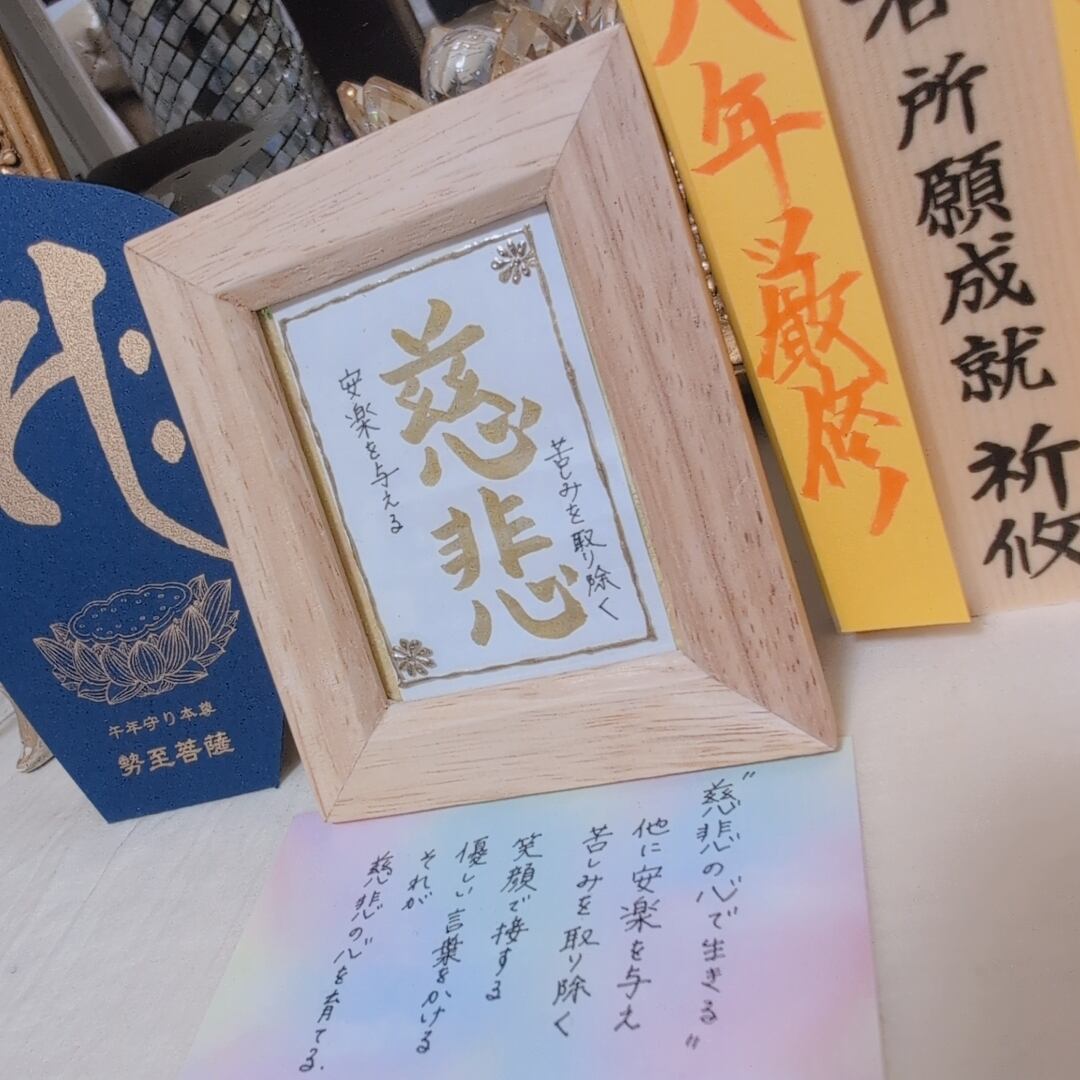 慈悲
苦しみを取り除く
安楽を与える
〝慈悲の心で生きる〟
他に安楽を与え
苦しみを取り除く
笑顔で接する
優しい言葉をかける
それが
慈悲の心を育てる.
午年守り本尊
勢至菩薩
年 厳修
所願成就 祈攸